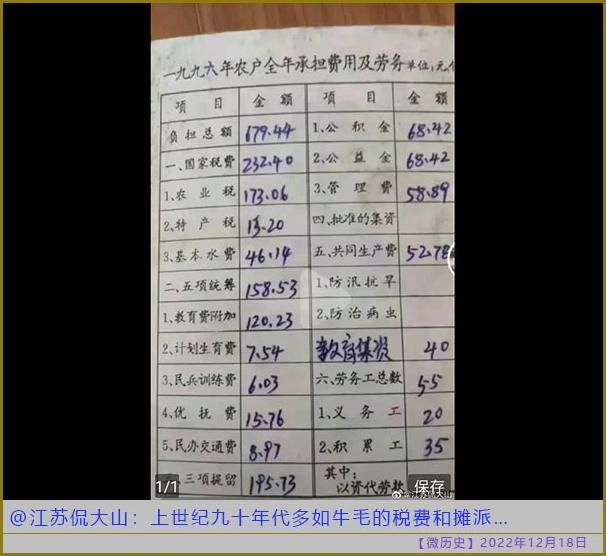 一九九六年农户全年承担费用及劳务 单位:元
项 目 金 额 项 目 金 额
负担总额 679.44 1.公 积 金 68.42
一、国家税费 232.40 2.公 益 金 68.42
1.农 业 税 173.06 3.管 理 费 58.89
2.特 产 税 13.20 四.批准的集资
3.基本水费 46.14 五.共同生产费 52.78
二.五项统筹 158.53 1.防汛抗旱
1.教育费附加 120.23 2.防治病虫
2.计划生育费 7.54 教育集资 40
3.民兵训练费 6.03 六.劳务工总数 55
4.优 抚 费 15.76 1.义 务 工 20
5.民办交通费 8.97 2.积 累 工 35
三项提留 195.73 其中:
以资代劳款
1/1 保存
@江苏侃大山:上世纪九十年代多如牛毛的税费和摊派...
【微历史】2022年12月18日